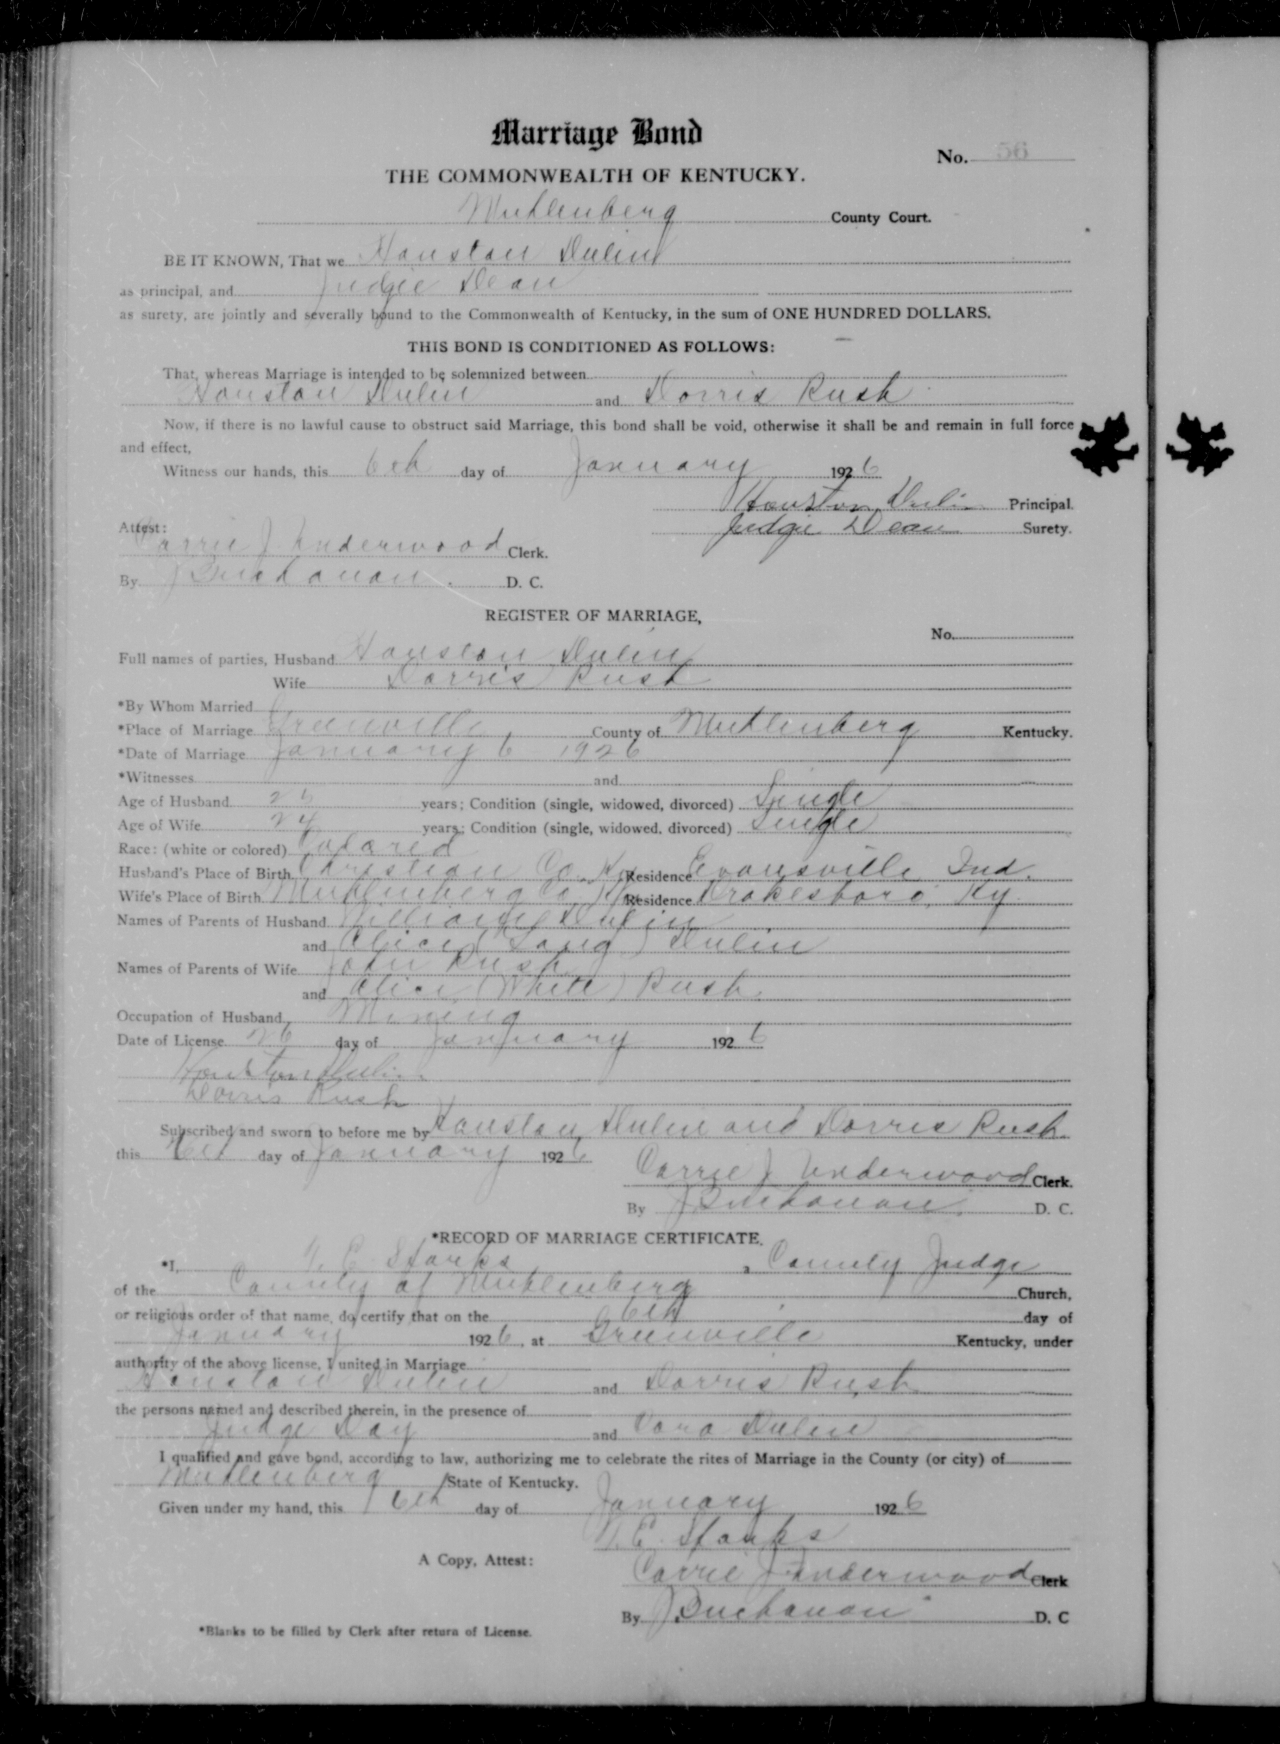 Marriage Bond
No. 56
THE COMMONWEALTH OF KENTUCKY.
Muhlenberg County Court.
BE IT KNOWN, That we Houston Dulin
as principal, and Judgie Dean
as surety, are jointly and severally bound to the Commonwealth of Kentucky, in the sum of ONE HUNDRED DOLLARS.
THIS BOND IS CONDITIONED AS FOLLOWS:
That, whereas Marriage is intended to be solemnized between
Houston Dulin and Dorris Rush
Now, if there is no lawful cause to obstruct said Marriage, this bond shall be void, otherwise it shall be and remain in full force
and effect,
Witness our hands, this 6th day of January 1926
Houston Dulin Principal.
Judgie Dean Surety.
Attest:
Carrie J Underwood Clerk.
By J Buchanan. D. C.
REGISTER OF MARRIAGE,
No.
Full names of parties, Husband Houston Dulin
Wife Dorris Rush
*By Whom Married
*Place of Marriage Greenville County of Muhlenberg Kentucky.
*Date of Marriage January 6 1926
*Witnesses and
Age of Husband years; Condition (single, widowed, divorced) Single
Age of Wife 24 years; Condition (single, widowed, divorced) Single
Race: (white or colored) Colored
Husband's Place of Birth Christian Co. Ky Residence Evansville Ind.
Wife's Place of Birth Muhlenberg Co, Ky Residence Drakesboro, Ky.
Names of Parents of Husband William Dulin
and Alice (Long) Dulin
Names of Parents of Wife John Rush
and Alice (White) Rush.
Occupation of Husband Mining
Date of License 26 day of January 1926
Houston Dulin
Dorris Rush
Subscribed and sworn to before me by Houston Dulin and Dorris Rush.
this 6th day of January 1926
Carrie J Underwood Clerk.
By J Buchanan. D. C.
*RECORD OF MARRIAGE CERTIFICATE.
*I, E. Starks, County Judge
of the County of Muhlenberg Church,
or religious order of that name, do certify that on the 6th day of
January 1926, at Greenville Kentucky, under
authority of the above license, I united in Marriage
Houston Dulin and Dorris Rush
the persons named and described therein, in the presence of
Judge Day and Cora Dulin
I qualified and gave bond, according to law, authorizing me to celebrate the rites of Marriage in the County (or city) of
Muhlenberg State of Kentucky.
Given under my hand, this 6th day of January 1926
E. Starks
A Copy, Attest:
Carrie J Underwood Clerk
By J Buchanan D. C
*Blanks to be filled by Clerk after return of License.